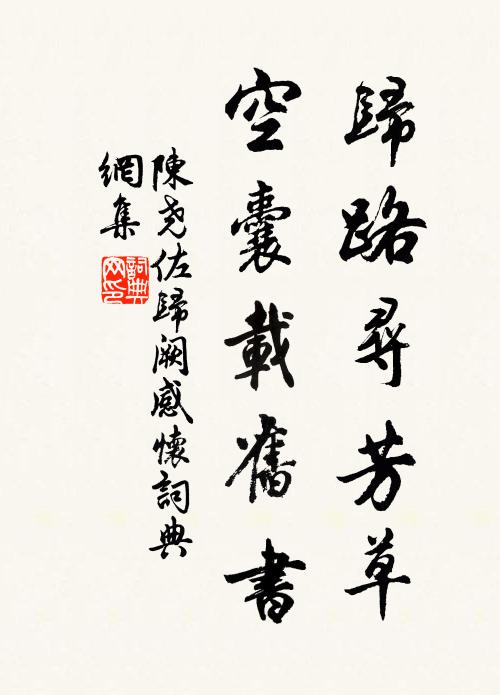 歸路尋芳草
空囊載舊書
陳堯佐歸闕感懷詞典
網集
詞典
网印